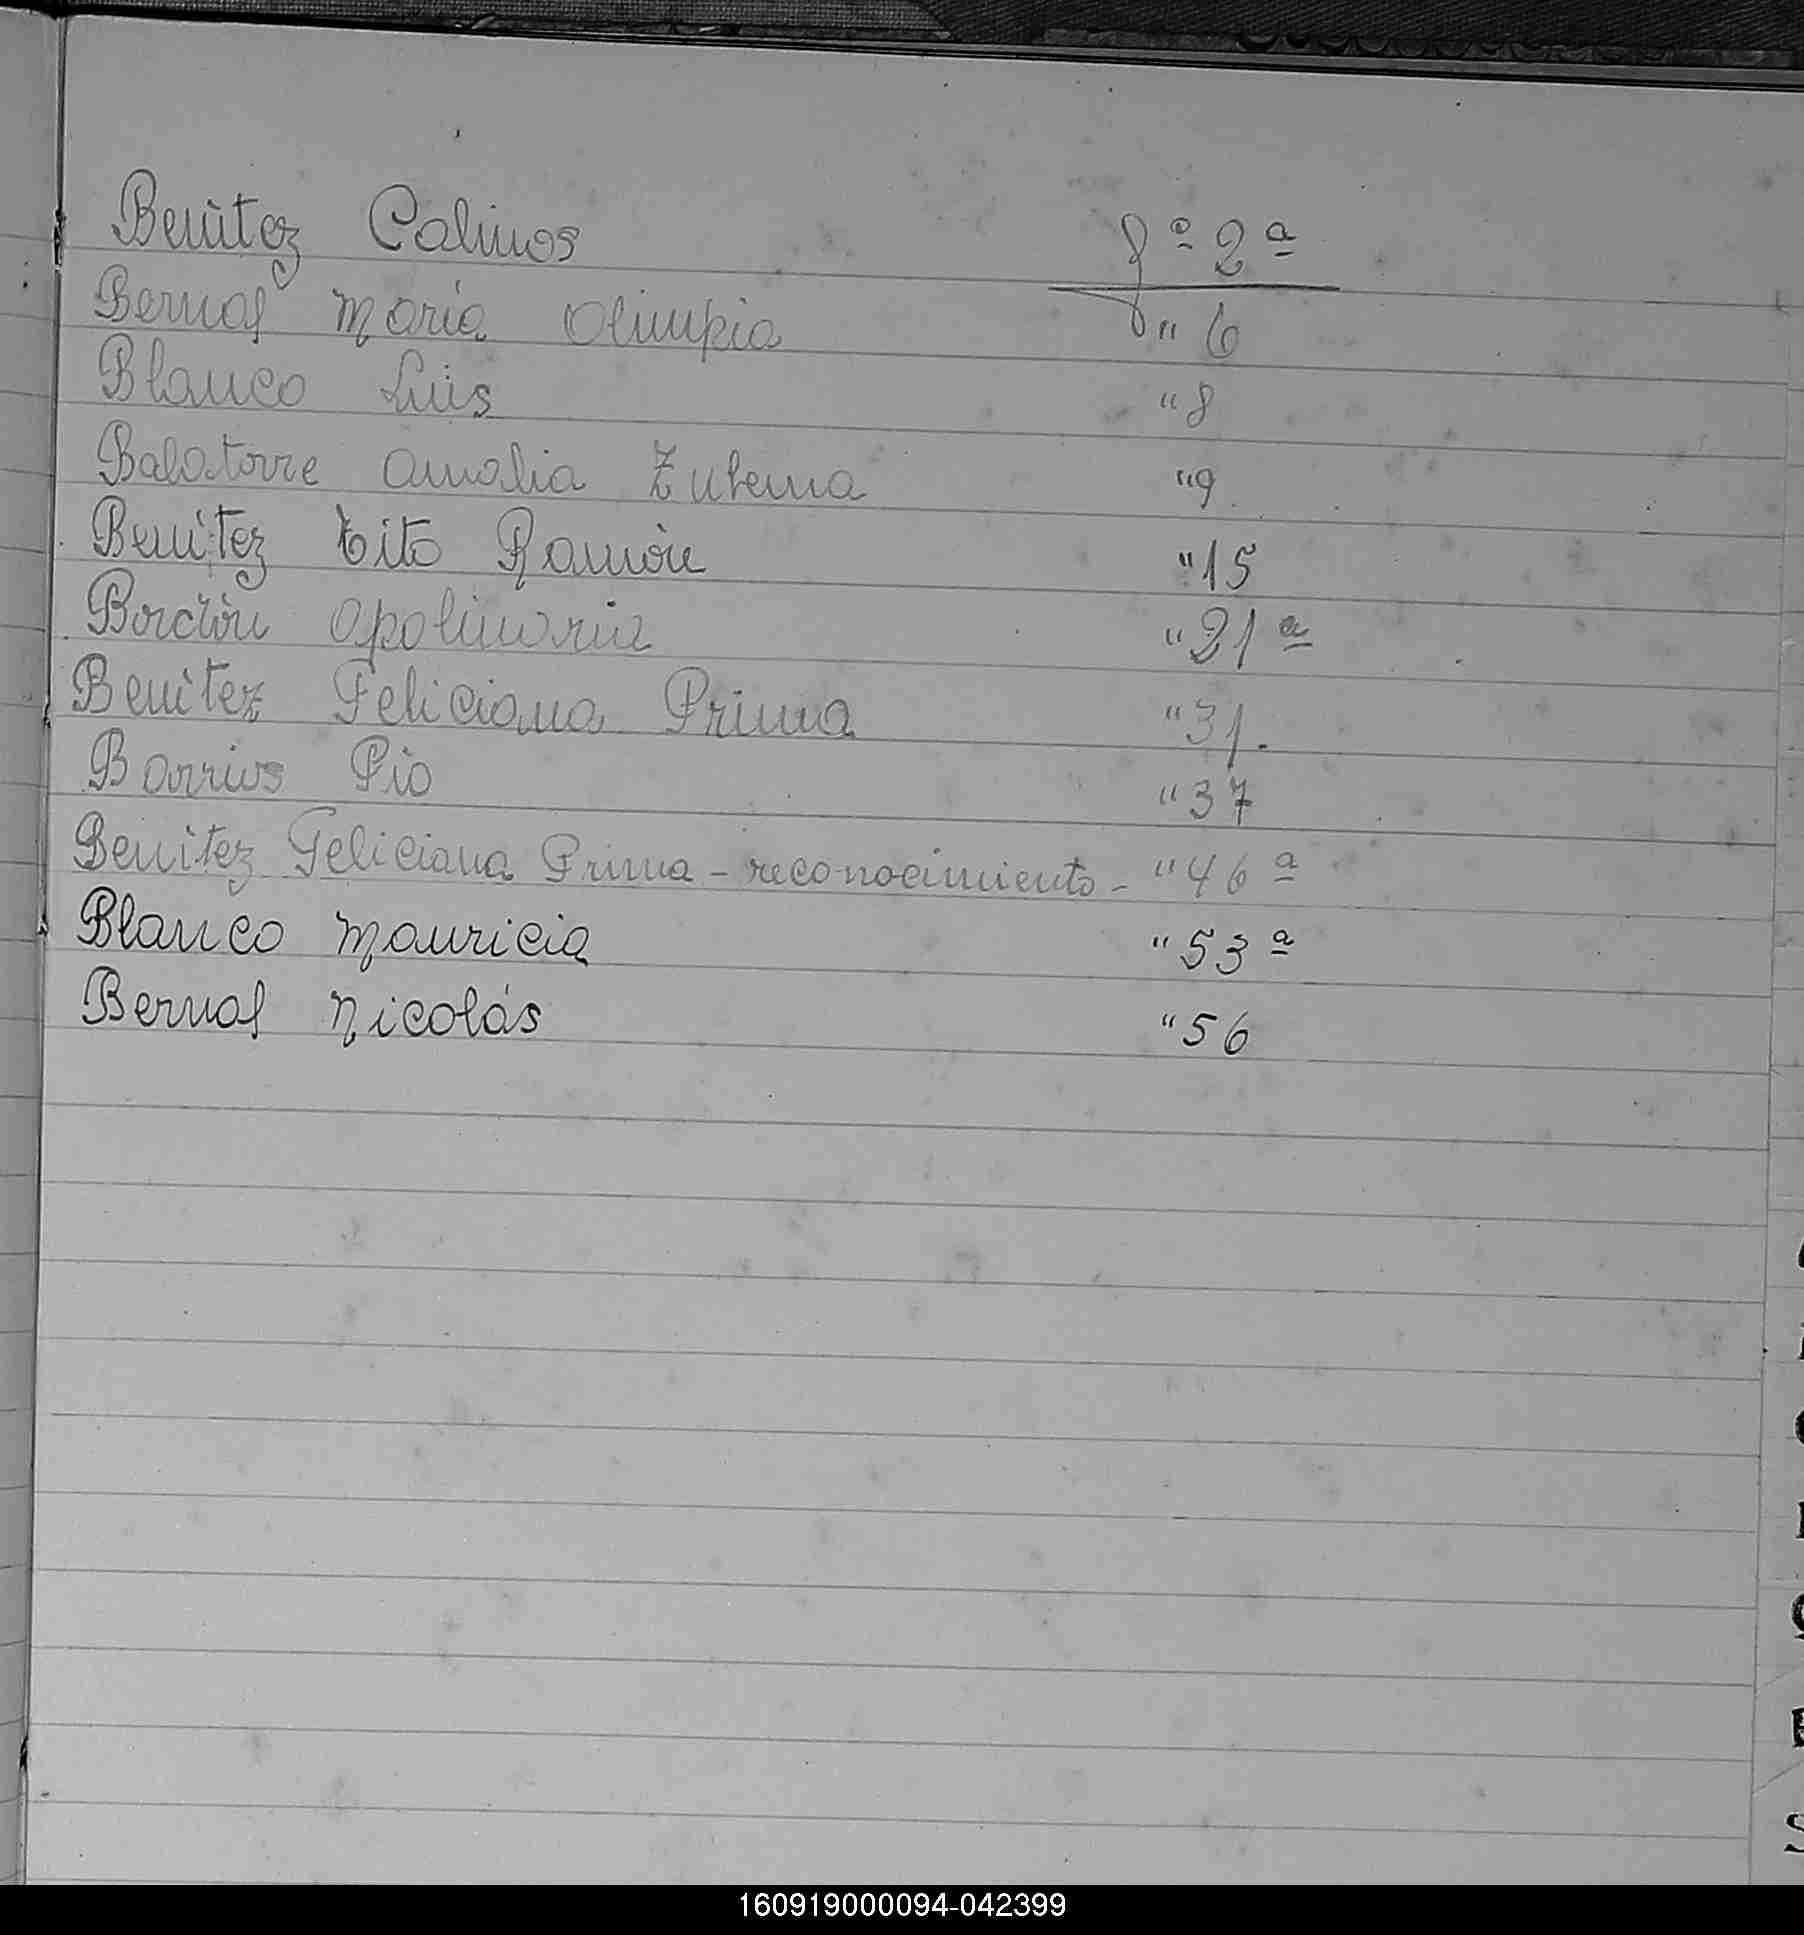 Benitez Calinos fº 2ª
Bernal Maria Olimpia " 6
Blanco Luis " 8
Balatorre Amalia Zulema " 9
Benitez Tito Ramón " 15
Bordón Apolinaria " 21ª
Benitez Feliciana Prima " 31.
Barrios Pio " 37
Benitez Feliciana Prima - reconocimiento - " 46ª
Blanco Mauricia " 53ª
Bernal Nicolás " 56
160919000094-042399